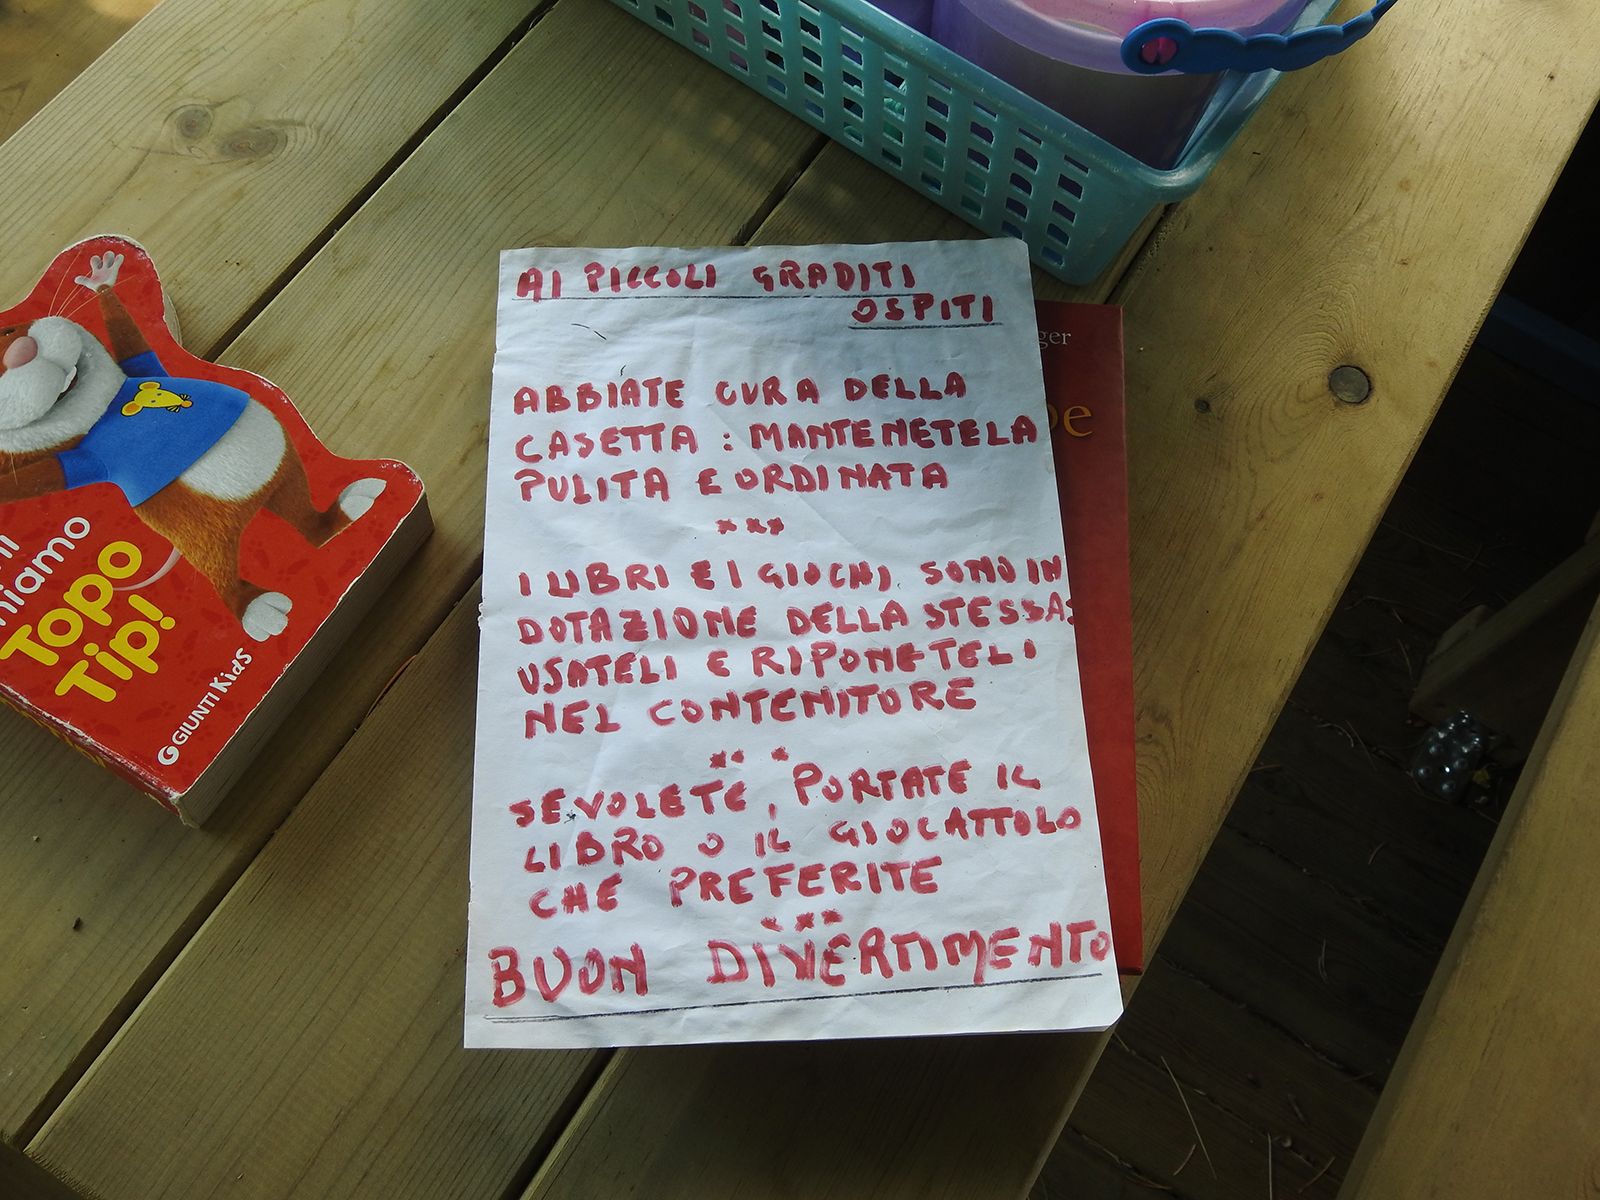 AI PICCOLI GRADITI
OSPITI
ABBIATE CURA DELLA
CASETTA : MANTENETELA
PULITA E ORDINATA
***
I LIBRI E I GIOCHI SONO IN
DOTAZIONE DELLA STESSA:
USATELI E RIPONETELI
NEL CONTENITORE
***
SE VOLETE, PORTATE IL
LIBRO O IL GIOCATTOLO
CHE PREFERITE
***
BUON DIVERTIMENTO
Topo
Tip!
GIUNTI KidS